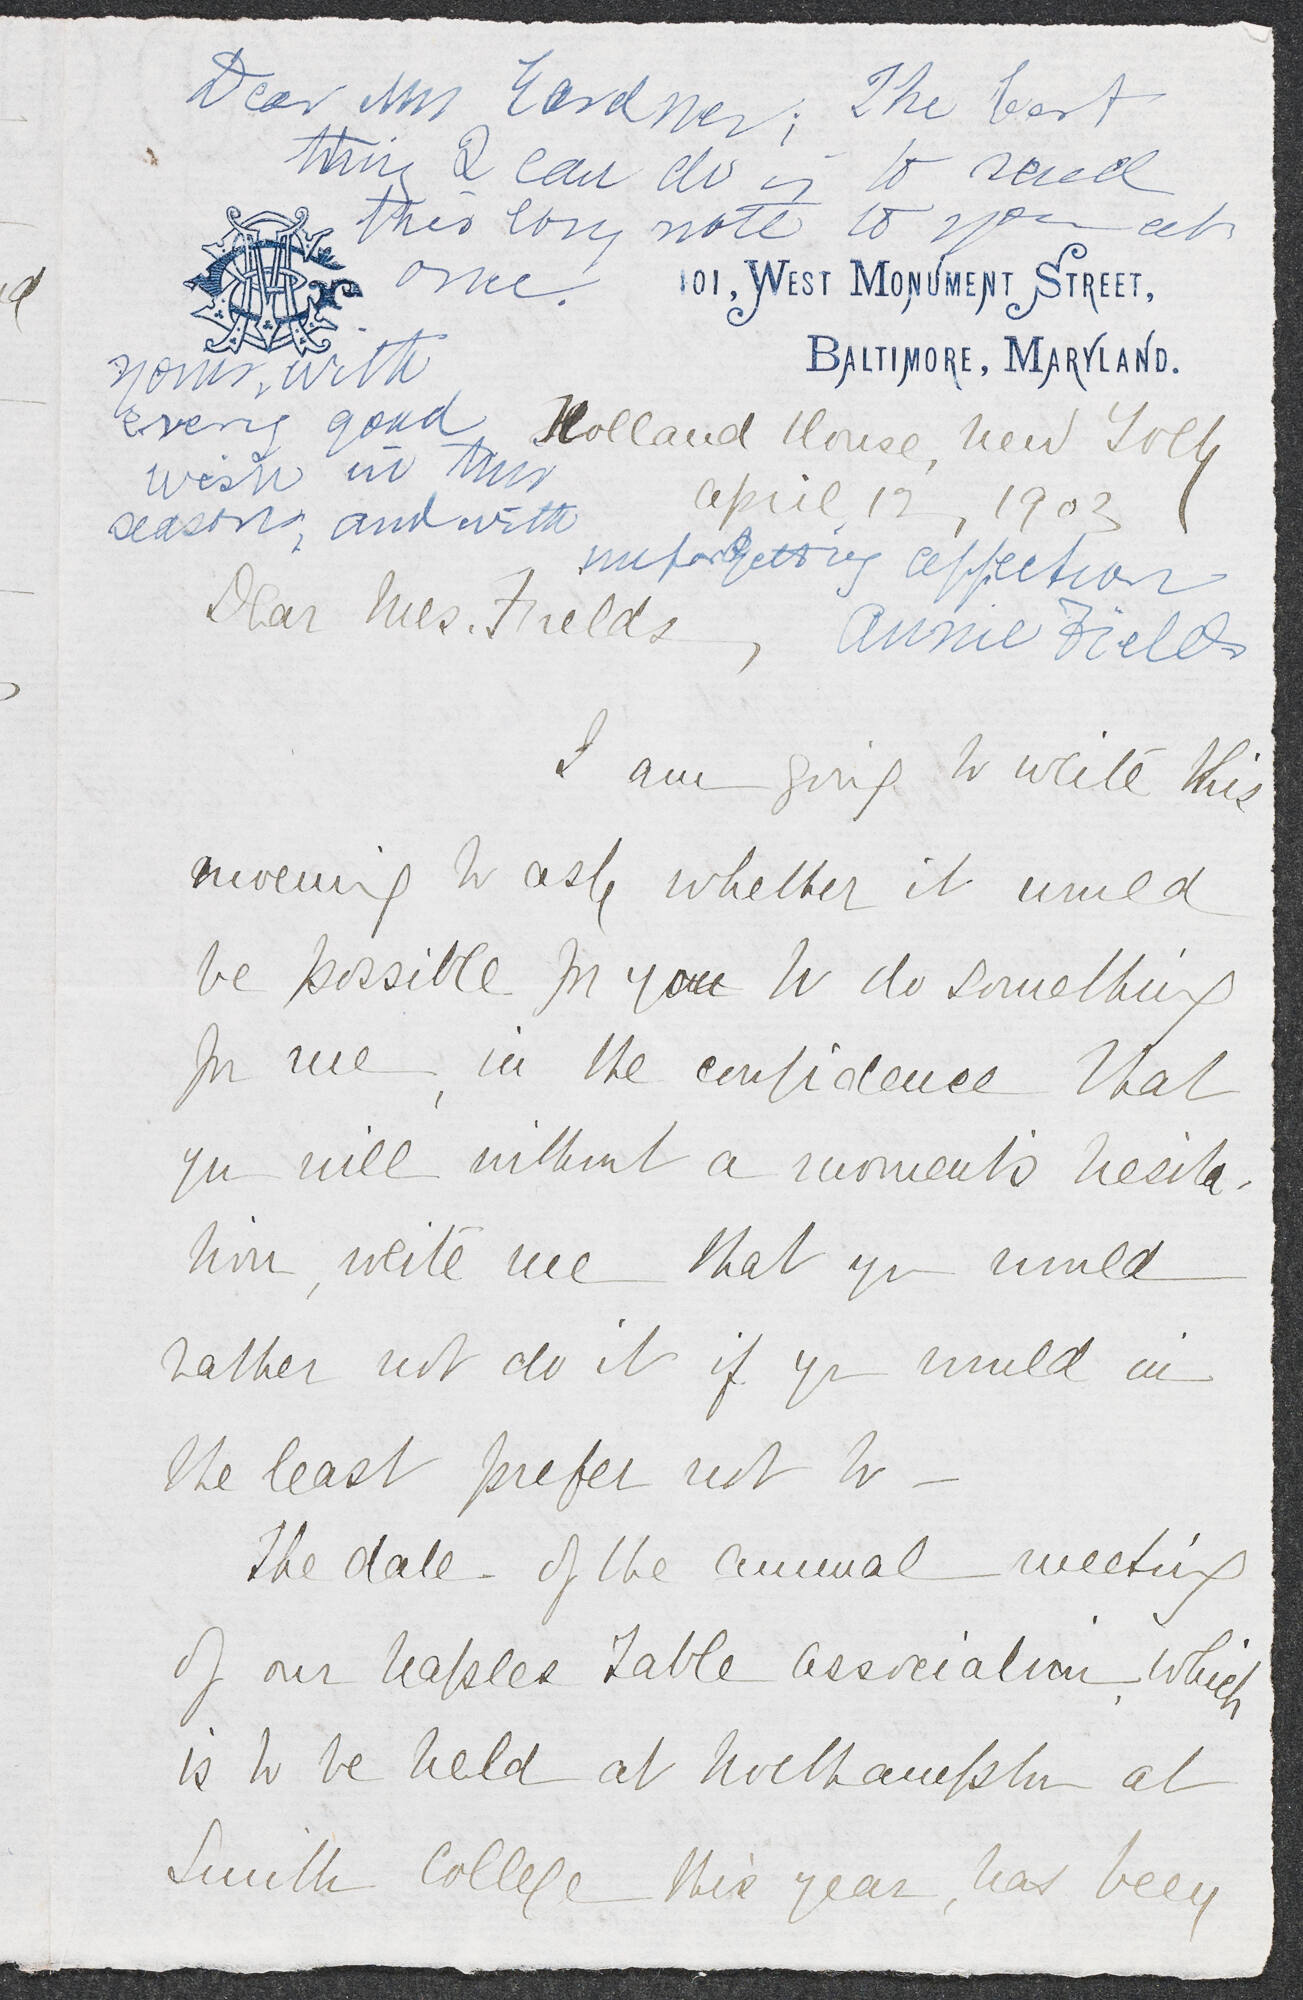 Dear Mrs Gardner; The best
thing I can do is to send
this long note to you at
once.
yours, with
every good
wish in this
season, and with
unforgetting affection
Annie Fields
101, WEST MONUMENT STREET,
BALTIMORE, MARYLAND.
Holland House, New York
April 12, 1903
Dear Mrs. Fields,
I am going to write this
morning to ask whether it would
be possible for you to do something
for me, in the confidence that
you will without a moment's hesita-
tion, write me that you would
rather not do it if you would in
the least prefer not to -
The date of the annual meeting
of our Naples Table Association, which
is to be held at Northampton at
Smith College this year, has been